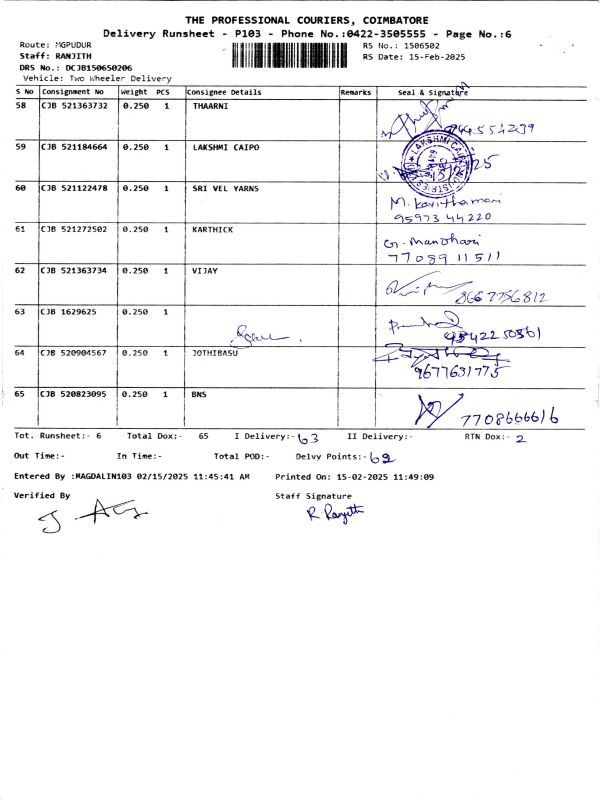 THE PROFESSIONAL COURIERS, COIMBATORE
Delivery Runsheet - P103 - Phone No.:0422-3505555 - Page No.:6
Route: MGPUDUR RS No.: 1506502
Staff: RANJITH RS Date: 15-Feb-2025
DRS No.: DCJB150650206
Vehicle: Two Wheeler Delivery
S No Consignment No Weight PCS Consignee Details Remarks Seal & Signature
58 CJB 521363732 0.250 1 THAARNI
59 CJB 521184664 0.250 1 LAKSHMI CAIPO
60 CJB 521122478 0.250 1 SRI VEL YARNS
M. Kavithamani
95973 44220
61 CJB 521272502 0.250 1 KARTHICK
G. Manohari
77089 11511
62 CJB 521363734 0.250 1 VIJAY
8667756812
63 CJB 1629625 0.250 1
64 CJB 520904567 0.250 1 JOTHIBASU
9677631775
65 CJB 520823095 0.250 1 BNS
7708666616
Tot. Runsheet:- 6 Total Dox:- 65 I Delivery:- 63 II Delivery:- RTN Dox:- 2
Out Time:- In Time:- Total POD:- Delvy Points:- 62
Entered By :MAGDALIN103 02/15/2025 11:45:41 AM Printed On: 15-02-2025 11:49:09
Verified By Staff Signature
R Ranjith